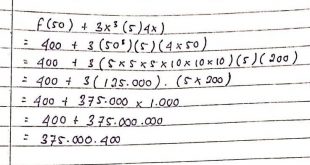 f(50) + 3x³(5)4x)
= 400 + 3(50³)(5)(4x50)
= 400 + 3(5x5x5x10x10x10)(5)(200)
= 400 + 3(125.000).(5x200)
= 400 + 375.000 x 1.000
= 400 + 375.000.000
= 375.000.400